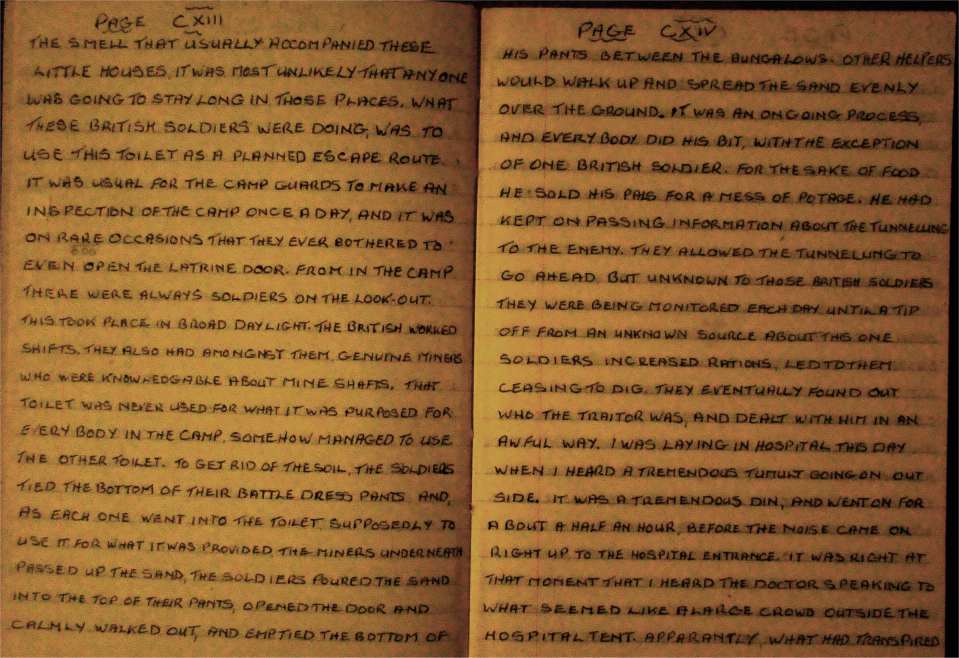 PAGE CXIII
THE SMELL THAT USUALLY ACCOMPANIED THESE
LITTLE HOUSES, IT WAS MOST UNLIKELY THAT ANYONE
WAS GOING TO STAY LONG IN THOSE PLACES. WHAT
THESE BRITISH SOLDIERS WERE DOING, WAS TO
USE THIS TOILET AS A PLANNED ESCAPE ROUTE.
IT WAS USUAL FOR THE CAMP GUARDS TO MAKE AN
INSPECTION OF THE CAMP ONCE A DAY, AND IT WAS
ON RARE OCCASIONS THAT THEY EVER BOTHERED TO
EVEN OPEN THE LATRINE DOOR. FROM IN THE CAMP
THERE WERE ALWAYS SOLDIERS ON THE LOOK-OUT.
THIS TOOK PLACE IN BROAD DAYLIGHT. THE BRITISH WORKED
SHIFTS. THEY ALSO HAD AMONGNST THEM, GENUINE MINERS
WHO WERE KNOWLEDGABLE ABOUT MINE SHAFTS. THAT
TOILET WAS NEVER USED FOR WHAT IT WAS PURPOSED FOR
EVERYBODY IN THE CAMP, SOMEHOW MANAGED TO USE
THE OTHER TOILET. TO GET RID OF THE SOIL, THE SOLDIERS
TIED THE BOTTOM OF THEIR BATTLE DRESS PANTS AND,
AS EACH ONE WENT INTO THE TOILET SUPPOSEDLY TO
USE IT FOR WHAT IT WAS PROVIDED, THE MINERS UNDERNEATH
PASSED UP THE SAND, THE SOLDIERS POURED THE SAND
INTO THE TOP OF THEIR PANTS, OPENED THE DOOR AND
CALMLY WALKED OUT, AND EMPTIED THE BOTTOM OF
PAGE CXIV
HIS PANTS BETWEEN THE BUNGALOWS. OTHER HELPERS
WOULD WALK UP AND SPREAD THE SAND EVENLY
OVER THE GROUND. IT WAS AN ONGOING PROCESS,
AND EVERYBODY DID HIS BIT, WITH THE EXCEPTION
OF ONE BRITISH SOLDIER. FOR THE SAKE OF FOOD
HE SOLD HIS PALS FOR A MESS OF POTAGE. HE HAD
KEPT ON PASSING INFORMATION ABOUT THE TUNNELLING
TO THE ENEMY. THEY ALLOWED THE TUNNELLING TO
GO AHEAD BUT UNKNOWN TO THOSE BRITISH SOLDIERS
THEY WERE BEING MONITORED EACH DAY UNTIL A TIP
OFF FROM AN UNKNOWN SOURCE ABOUT THIS ONE
SOLDIERS INCREASED RATIONS, LED TO THEM
CEASING TO DIG. THEY EVENTUALLY FOUND OUT
WHO THE TRAITOR WAS, AND DEALT WITH HIM IN AN
AWFUL WAY. I WAS LAYING IN HOSPITAL THIS DAY
WHEN I HEARD A TREMENDOUS TUMULT GOING ON OUT
SIDE. IT WAS A TREMENDOUS DIN, AND WENT ON FOR
ABOUT A HALF AN HOUR, BEFORE THE NOISE CAME ON
RIGHT UP TO THE HOSPITAL ENTRANCE. IT WAS RIGHT AT
THAT MOMENT THAT I HEARD THE DOCTOR SPEAKING TO
WHAT SEEMED LIKE A LARGE CROWD OUTSIDE THE
HOSPITAL TENT. APPARANTLY, WHAT HAD TRANSPIRED